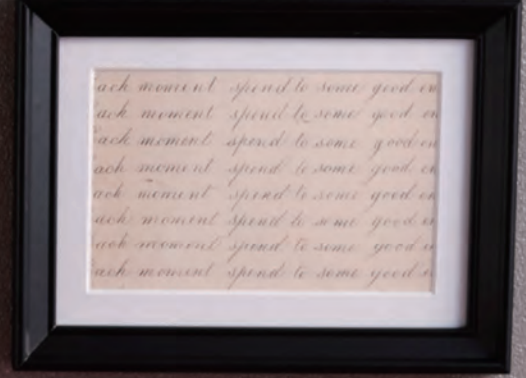 ach moment spend to some good en
ach moment spend to some good en
ach moment spend to some good en
ach moment spend to some good en
ach moment spend to some good en
ach moment spend to some good en
ach moment spend to some good e
ach moment spend to some good e